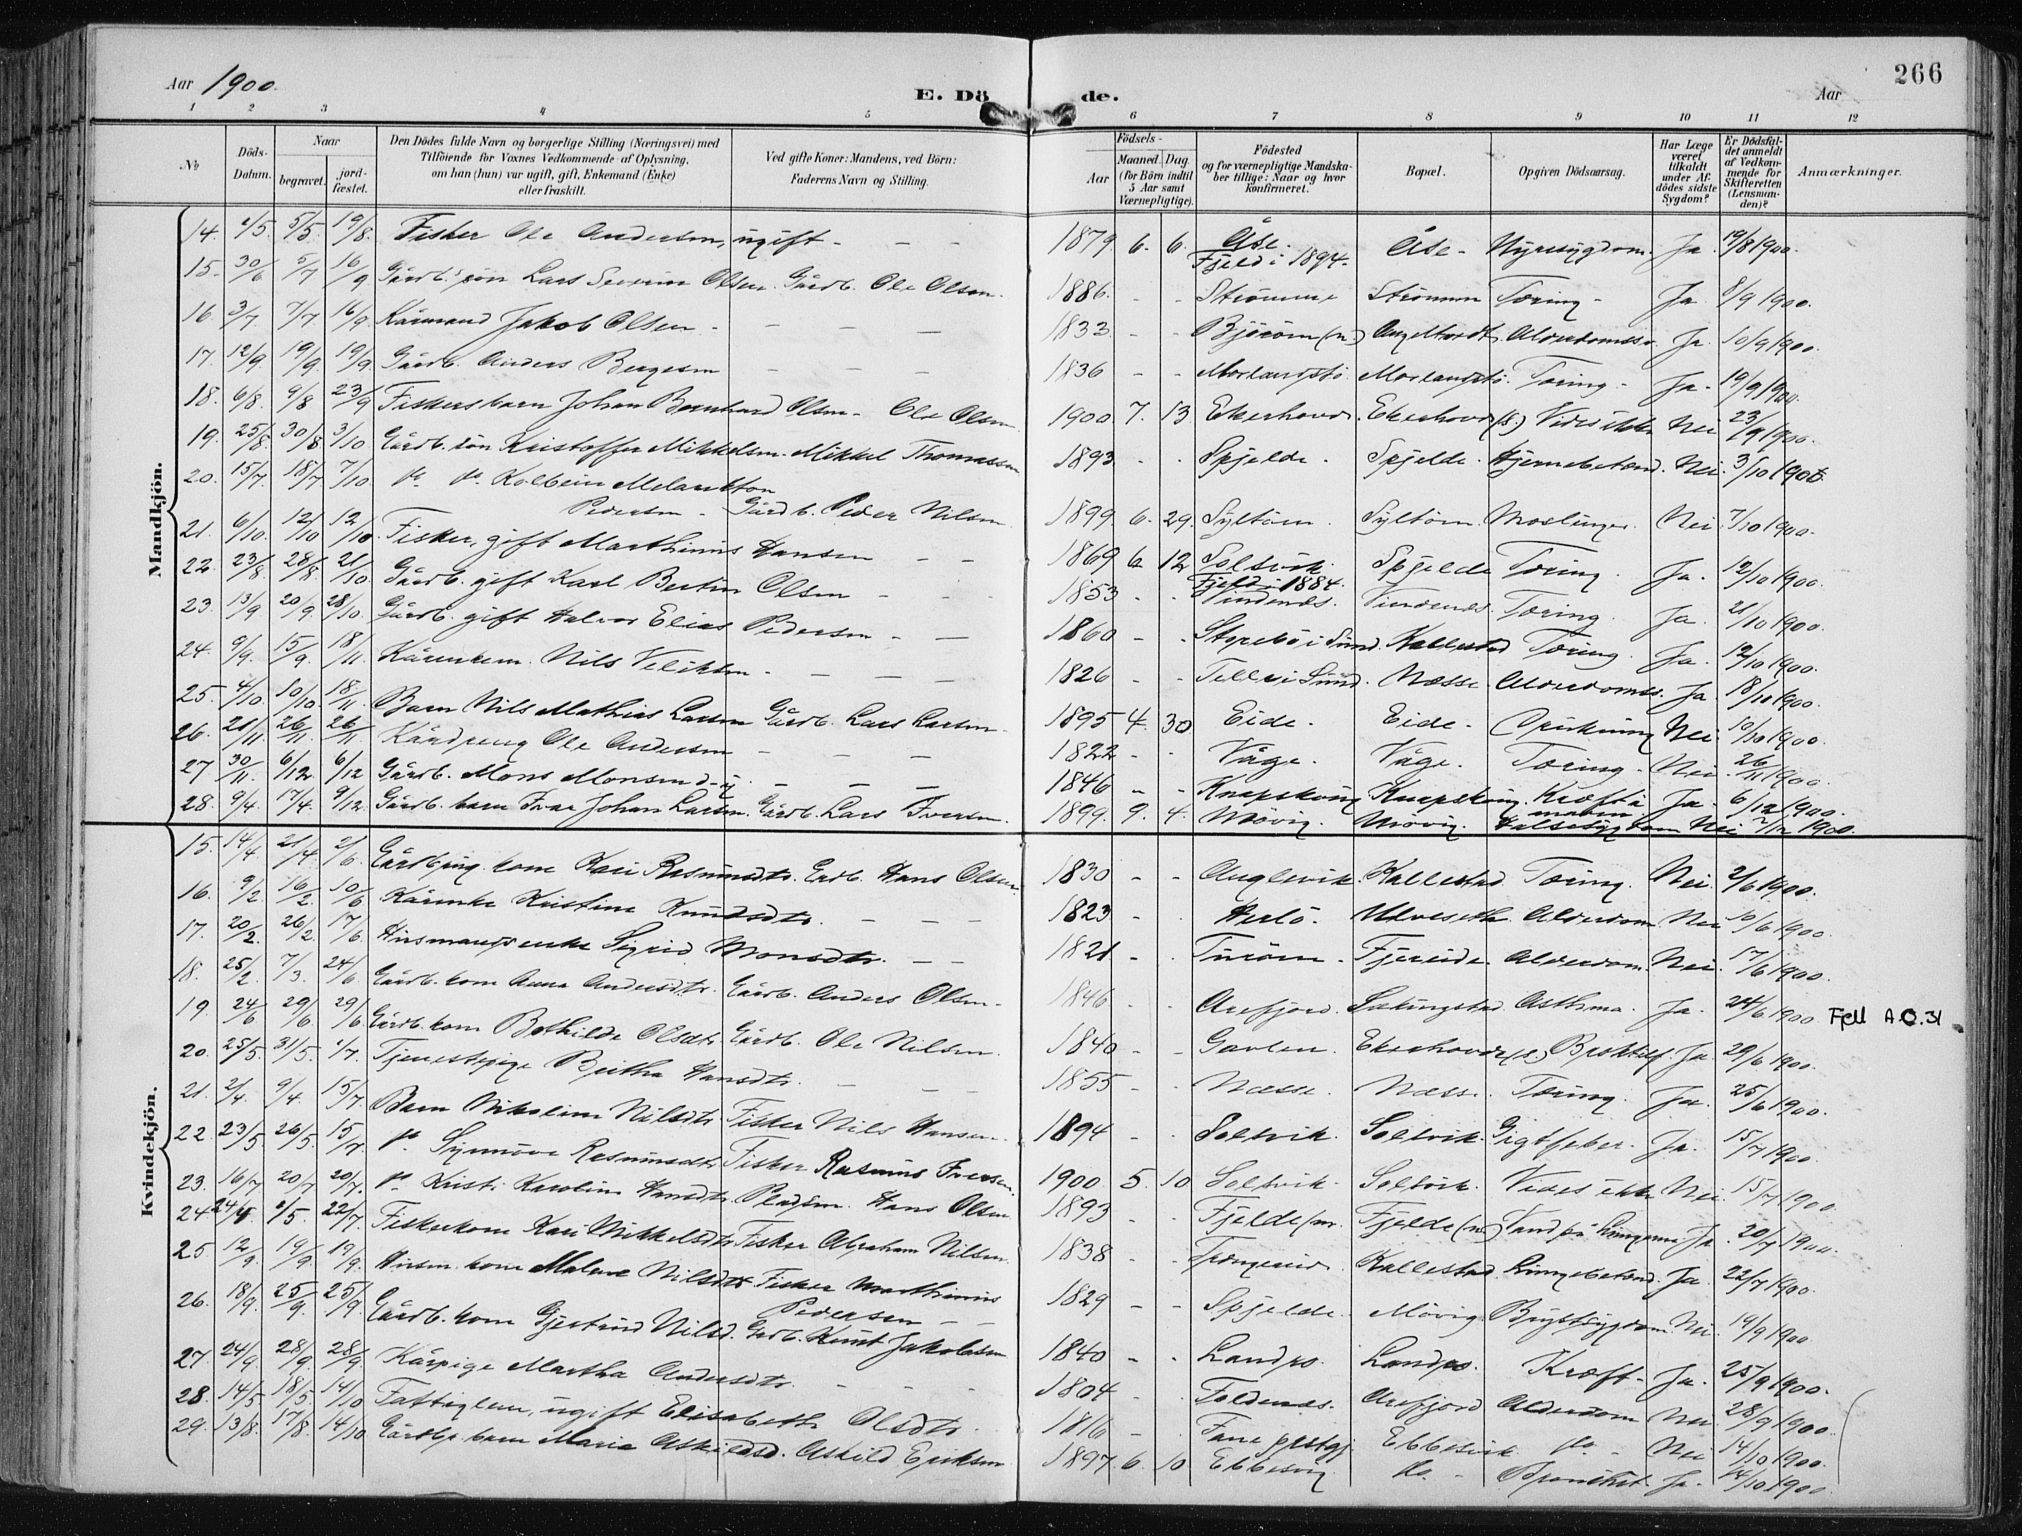 266
Aar 1900.
E. Dö de.
Aar
1 2 3 4 5 6 7 8 9 10 11 12
№ Döds-Datum. Naar begravet. jord-fæstet. Den Dödes fulde Navn og borgerlige Stilling (Næringsvei) med Tilföiende for Voxnes Vedkommende af Oplysning, om han (hun) var ugift, gift, Enkemand (Enke) eller fraskilt. Ved gifte Koner: Mandens, ved Börn: Faderens Navn og Stilling. Födsels- Aar Maaned Dag (for Börn indtil 5 Aar samt Værnepligtige). Födested og for værnepligtige Mandska-ber tillige: Naar og hvor konfirmeret. Bopæl. Opgiven Dödsaarsag. Har Læge været tilkaldt under Af-dödes sidste Sygdom? Er Dödsfal-det anmeldt af Vedkom-mende for Skifteretten (Lensman-den)? Anmærkninger.
Mandkjön.
14. 1/5. 5/5 19/8. Fisker Ole Andersen, ugift - - - 1879. 6. 6. Åse. Fjeld i 1894. Åse - Nyresygdom. Ja. 19/8 1900.
15. 30/6 5/7 16/9 Gårdb. søn Lars Severin Olsen. Gårdb. Ole Olsen. 1886. - - Strömme Strömme Tæring - Ja 8/9 1900.
16 3/7 7/7 16/9 Kårmand Jakob Olsen - - - - 1833. - - Ja. 10/9 1900.
17. 12/9. 19/9. 19/9. Gårdb. Anders Bergesen - - - 1836 - - Morlandstö. Morlandstö. Tæring - Ja. 19/9 1900.
18. 6/8. 9/8 23/9 Fiskersbarn Johan Bernhard Olsen - Ole Olsen 1900. 7. 13. Ekerhovd. Ekerhovd (s.) Vides ikke Nei 23/9 1900.
19. 25/8. 30/8 3/10 Gårdb. søn Kristoffer Mikkelsen. Mikkel Thomassen 1893. - - Spjelde. Spjelde. Hjernebetænd. Nei. 3/10 1900.
20. 15/7. 18/7 7/10. Kolbein Melankton Pedersen - Gårdb. Peder Nilsen 1899. 6. 29. Syltöen. Syltöen. Meslinger. Nei. 7/10 1900.
21. 6/10. 12/10 12/10. Fisker, gift Marthinus Hansen - - 1869 6. 12 Solsvik. Fjeld i 1884. Spjelde Tæring. Ja. 12/10 1900.
22. 23/8. 28/8. 21/10. Gårdb. gift Karl Bertin Olsen - - - 1853 - - Vindenæs. Vindenæs. Tæring. Ja. 21/10 1900.
23. 13/9 20/9. 28/10. Gårdb. gift Halvor Elias Pedersen - - 1860 - - Storebö i Sund Kallestad Tæring. Ja. 12/10 1900.
24. 9/9. 15/9. 18/11. Nils - - - 1826 - - Telle i Sund. Næsse. Alderdomss. Ja. 18/10 1900.
25. 4/10 10/10 18/11. Barn Nils Mathias Larsen Gårdb. Lars Larsen. 1895 4. 30 Eide. Eide. Nei. 10/10 1900.
26. 21/11. 26/11. 26/11 Ole Andersen - - - 1822 - - Våge. Våge. Tæring. Nei. 26/11 1900.
27 30/11. 6/12. 6/12 Gårdb. Mons Monsen - - - 1846 - - Knapskög Knapskög. Kræft i maven Ja. 6/12 1900.
28. 9/4. 17/4. 9/12. Gårdb. barn Ivar Johan Larsen. Gårdb. Lars Iversen. 1899. 9. 4. Mövig. Mövig. Halssygdom Nei 9/12 1900.
Kvindekjön.
15. 14/4 21/4. 2/6. kone Kari Rasmusdtr. Grdb. Hans Olsen. 1830 - - Anglevik. Kallestad Tæring. Nei. 2/6 1900.
16. 9/2 16/2 10/6 Kårenke Kristine Knudsdtr. - - - 1823 - - Herlö. Ulveseth Alderdom Nei 10/6 1900.
17. 20/2. 26/2. 17/6. Husmandsenke Sigrid Monsdtr. - - 1821 - - Turöen - Fjereide Alderdom. Nei. 17/6 1900.
18. 25/2 7/3. 24/6 Gårdb. kone Anna Andersdtr. Gårdb. Anders Olsen - 1846 - - Arefjord. Sekingstad Asthma. Ja. 24/6 1900. Fjell A.O.31
19. 24/6 29/6 29/6. Gårdb. kone Bothilde Olsdtr. Gårdb. Ole Nilsen. 1840 - - Gavlen. Ekerhovde (s.) Ja 29/6 1900.
20. 25/5. 31/5. 1/7. Tjenestpige Britha Hansdtr. - - - 1855 - - Næsse. Næsse. Tæring. Ja. 25/6 1900.
21. 2/4. 9/4. 15/7. Barn Nikoline Nilsdtr. Fisker Nils Hansen. 1894 - - Solsvik. Solsvik. Gigtfeber. Ja. 15/7 1900.
22. 23/5 26/5. 15/7. Synnöve Rasmusdtr. Fisker Rasmus Iversen. 1900. 5. 10 Solsvik. Solsvik. Vides ikke Nei 15/7 1900.
23. 16/7 20/7 20/7. Kristi Karoline Hansdtr. Hans Olsen 1893 - - Fjelde (m. Fjelde (m.) Vand på Lungerne Ja 20/7 1900.
24. 24/4. 1/5. 22/7. Fiskerkone Kari Mikkelsdtr. Fisker Abraham Nilsen. 1838 - - Kallestad. Lungebetænd. Ja. 22/7 1900.
25 12/9. 19/9. 19/9. Husm. kone Malene Nilsdtr. Fisker Marthinus Pedersen - - 1829 - - Spjelde. Mövig. Brystsygdom Nei. 19/9 1900
26. 18/9. 25/9. 25/9. Gårdb. kone Gjertrud Nilsd. Grdb. Knut Jakobsen 1840 - - Landro. Landro. Kræft - Ja. 25/9 1900.
27. 24/9. 28/9. 28/9. Kårpige Martha Andersdtr. - - - 1804 - - Foldnæs. Arefjord Alderdom Nei 28/9 1900.
28. 14/5. 18/5 14/10 Fattiglem, ugift Elisabeth Olsdtr. 1816 - Fane prstgj. Ebbesvik do. - Nei 14/10 1900.
29. 13/8. 17/8. 14/10. barn Maria Askildsd. Askild Eriksen 1897. 6. 10 Ebbesvig do. - Ja. 14/10 1900.